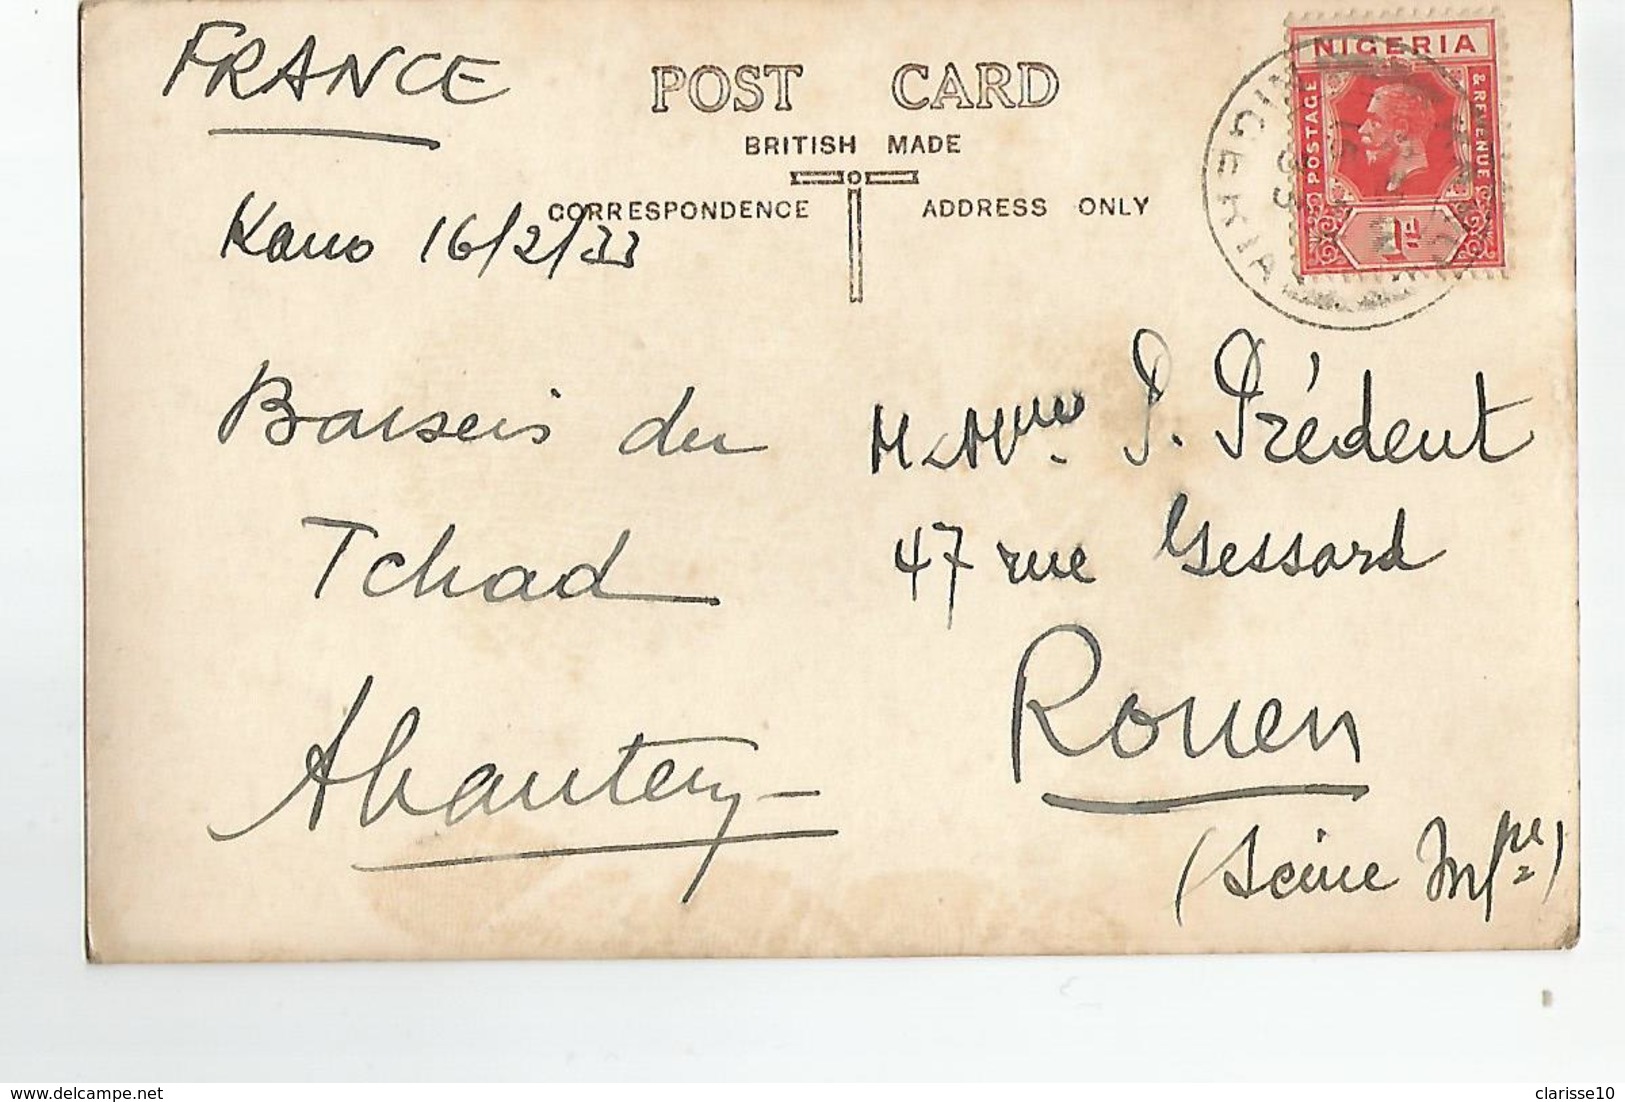 FRANCE
POST CARD
BRITISH MADE
CORRESPONDENCE
ADDRESS ONLY
NIGERIA
POSTAGE
& REVENUE
1D
NIGERIA
33
Kano 16/2/33
Baisers du
Tchad
M. Mme. P. Prédent
47 rue Gessard
Rouen
(Seine Infre)
clarisse10